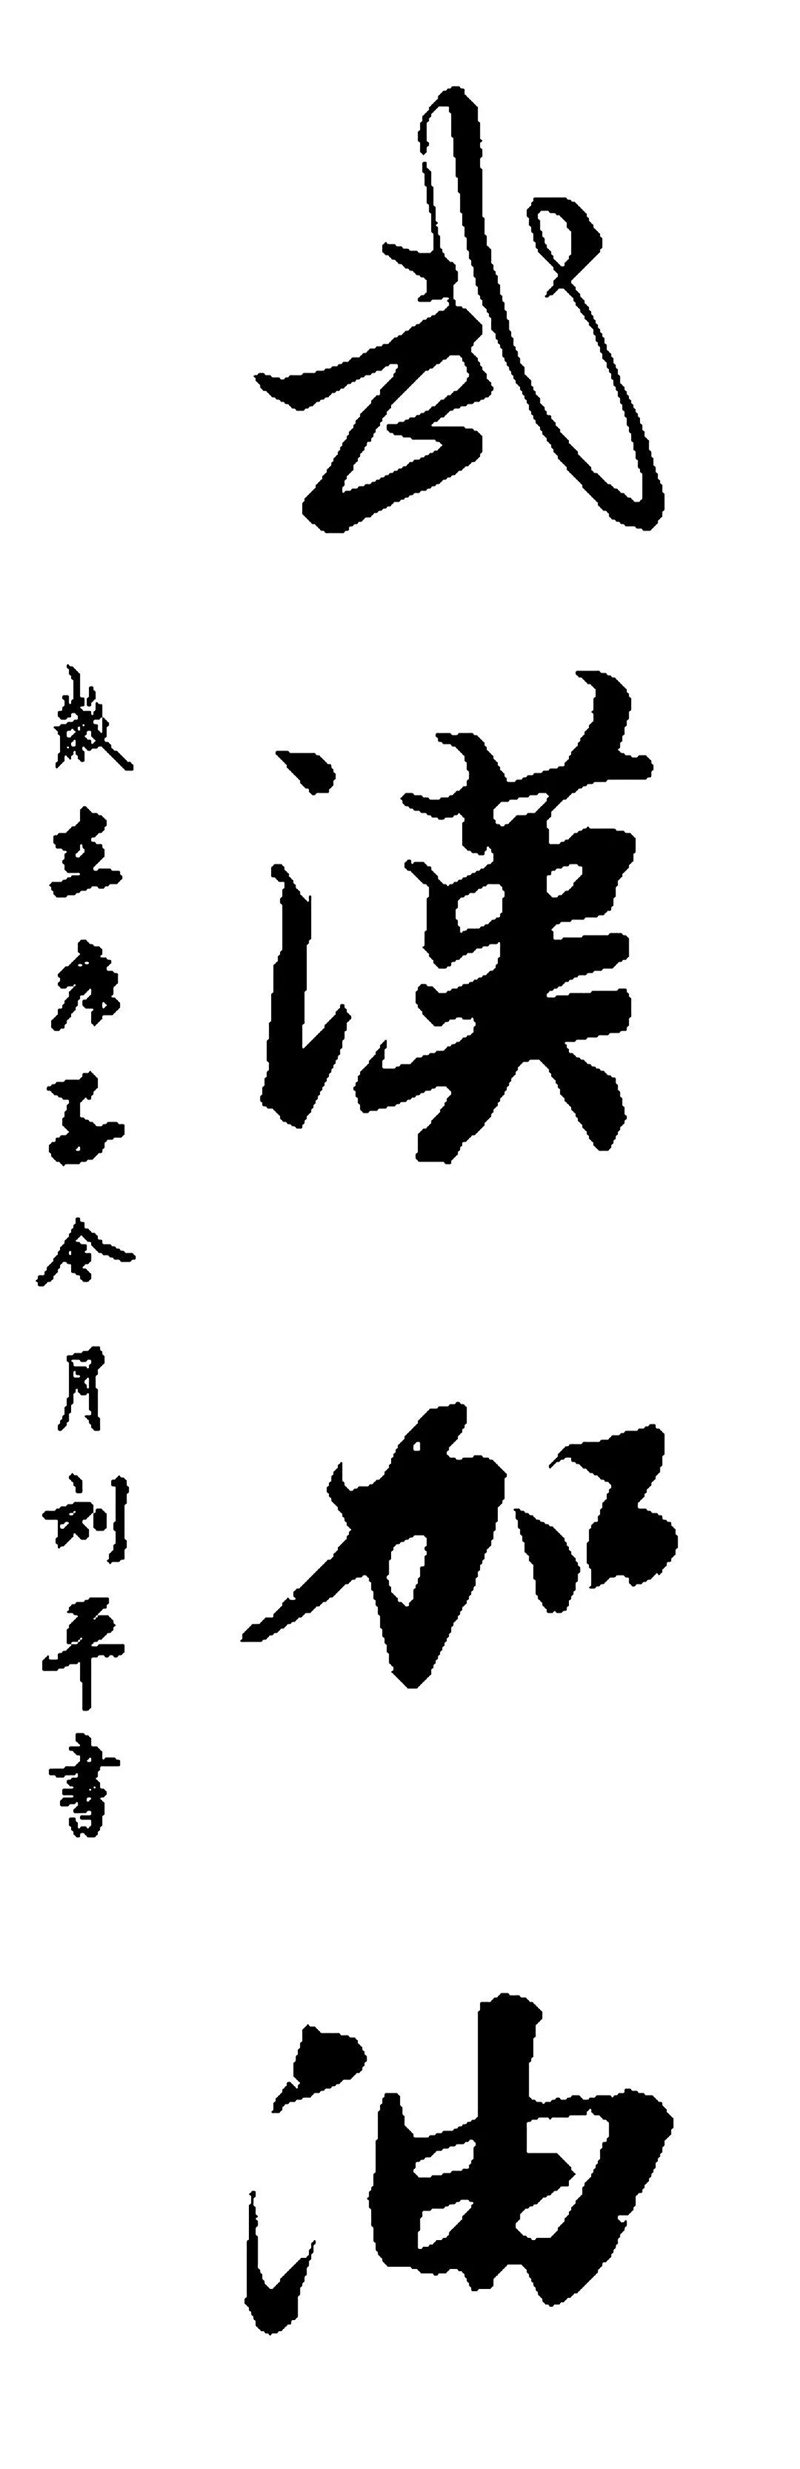 武漢加油
歲在庚子令月刘平書